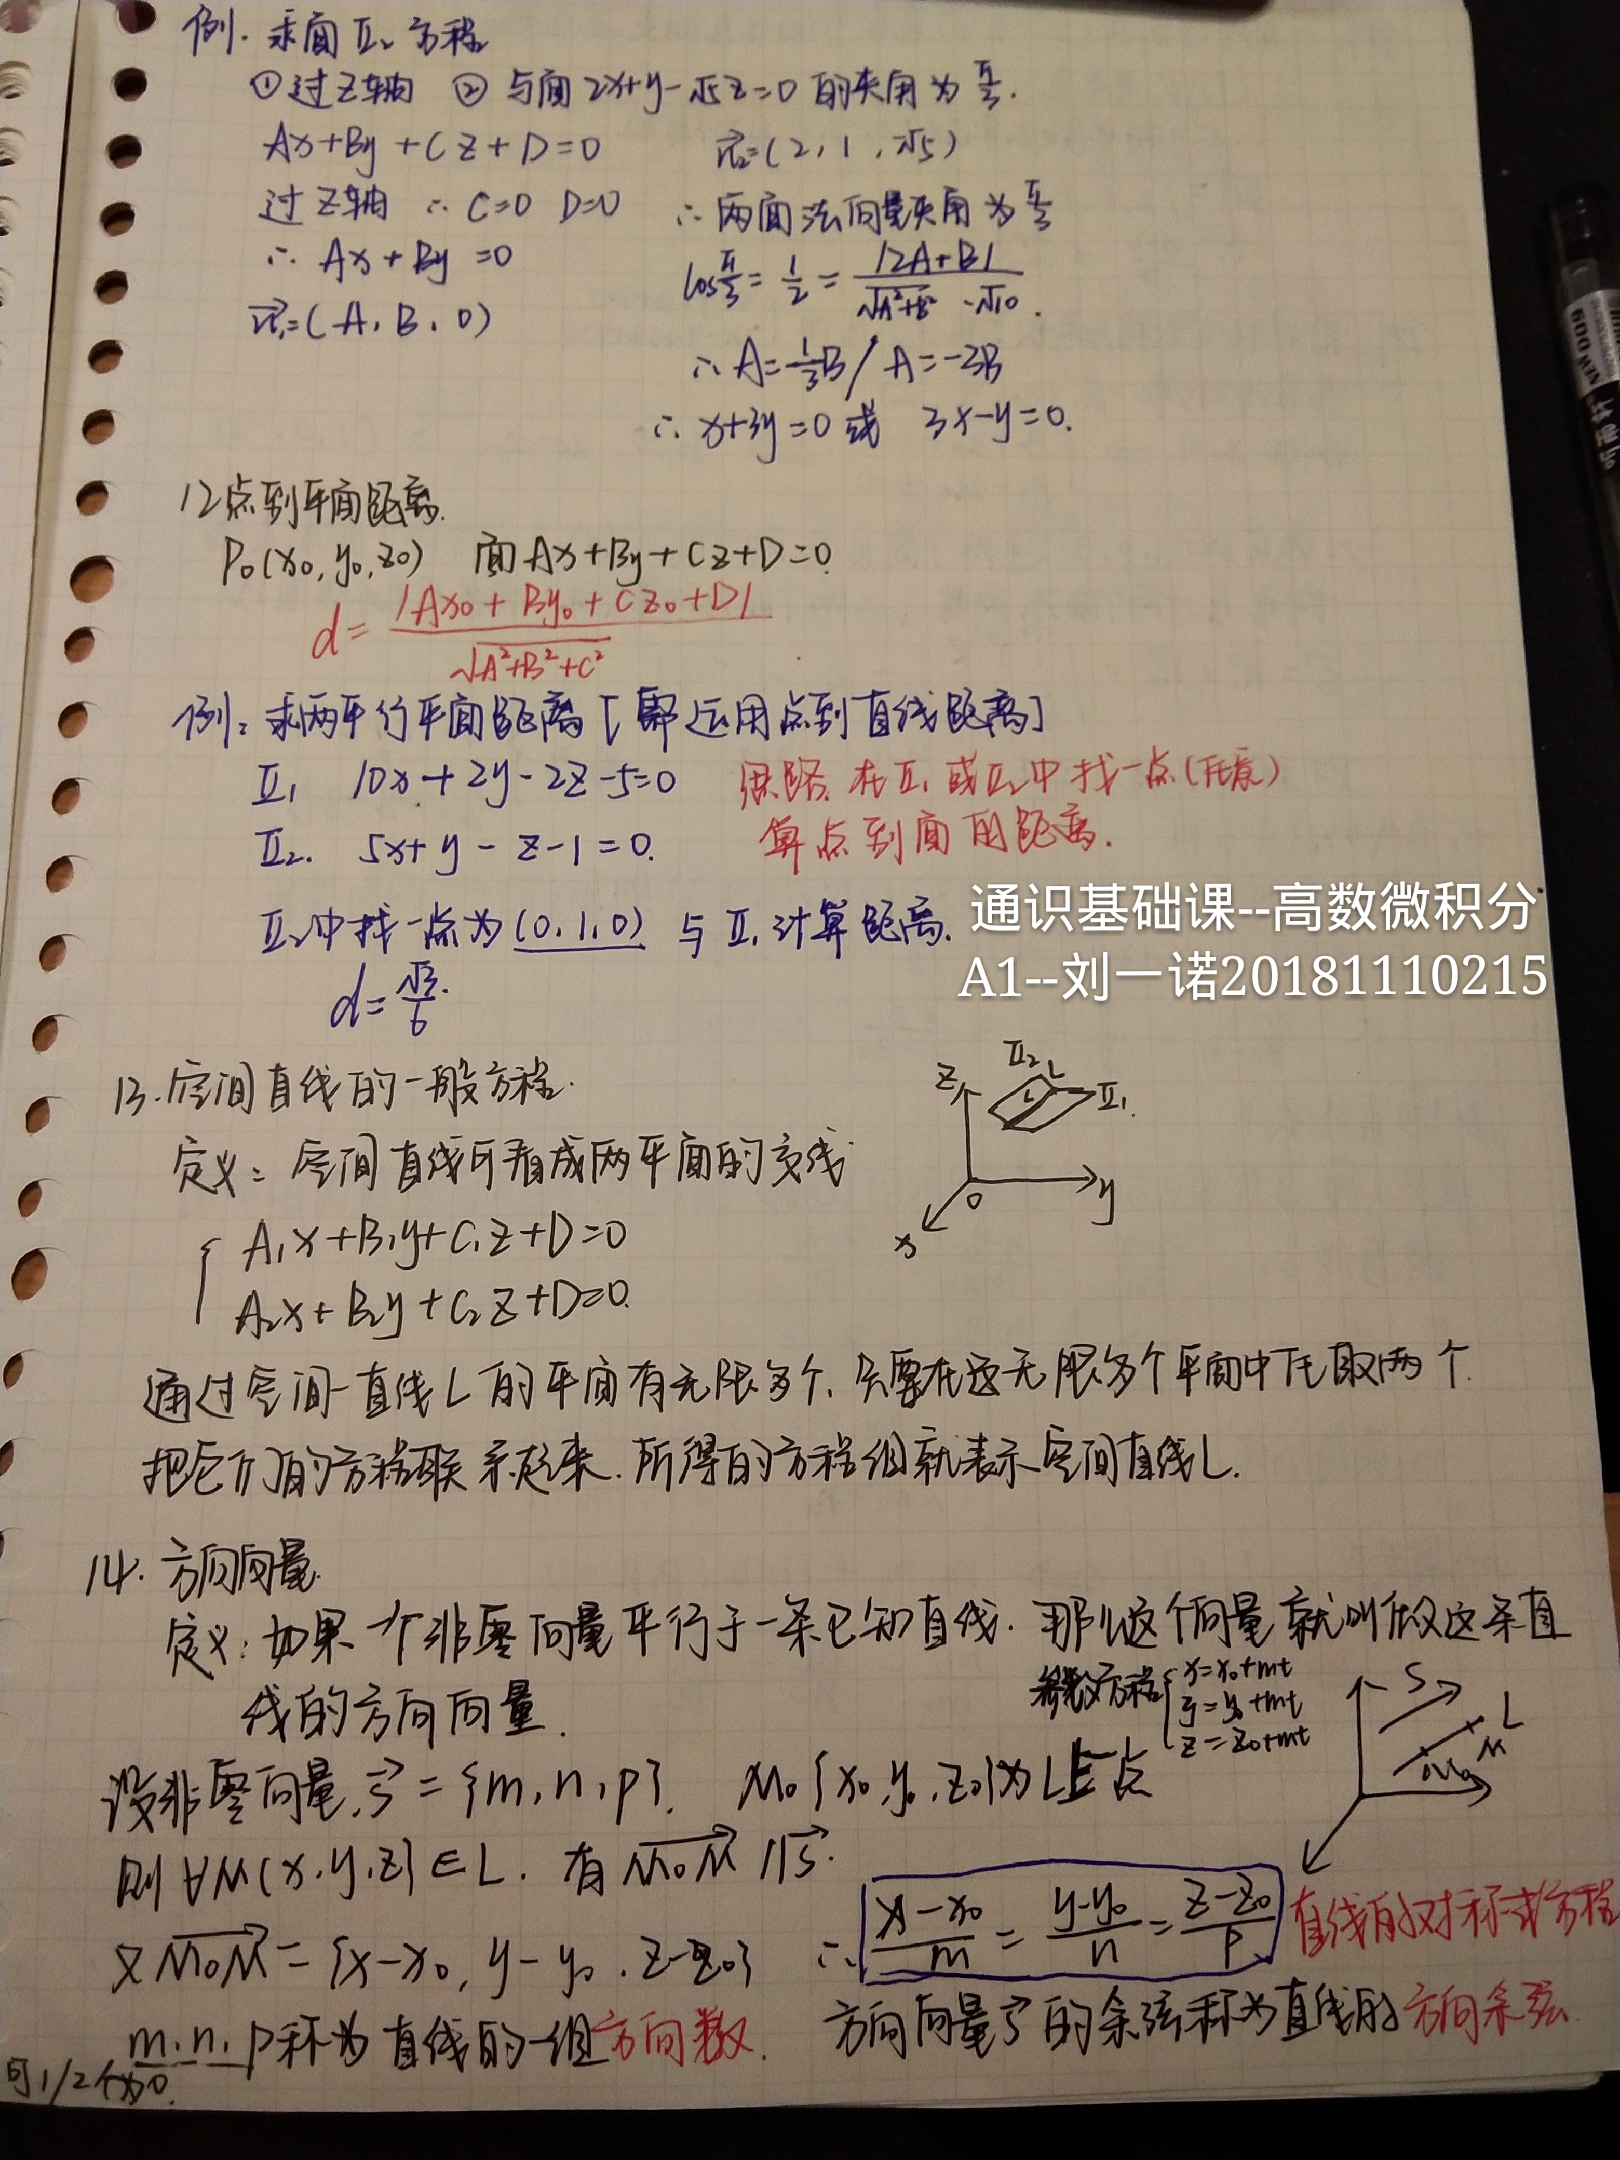 例. 求面Π₂方程
①过Z轴 ②与面2x+y-√5z=0的夹角为π/3.
Ax+By+Cz+D=0 n₂=(2,1,√5)
过Z轴 ∴ C=0 D=0 ∴两面法向量夹角为π/3
∴ Ax+By=0 cosπ/3=1/2=|2A+B|/(√A²+B² ·√10).
n₁=(A,B,0)
∴A=1/3B/A=-3B
∴x+3y=0或 3x-y=0.
12点到平面距离.
P₀(x₀,y₀,z₀) 面Ax+By+Cz+D=0
d=|Ax₀+By₀+Cz₀+D|/√A²+B²+C²
例:求两平行平面距离[需运用点到直线距离]
Π₁ 10x+2y-2z-5=0 思路.在Π₁或Π₂中找一点(任意)
Π₂. 5x+y-z-1=0. 算点到面的距离.
Π₂中找一点为(0,1,0)与Π₁计算距离.
通识基础课--高数微积分
A1--刘一诺20181110215
d=√3/6.
13.空间直线的一般方程.
Z Π₂ L Π₁.
L
O y x
定义:空间直线可看成两平面的交线
{A₁x+B₁y+C₁z+D=0
A₂x+B₂y+C₂z+D=0.
通过空间一直线L的平面有无限多个,只要在这无限多个平面中任取两个
把它们的方程联系起来.所得的方程组就表示空间直线L.
14.方向向量.
定义:如果一个非零向量平行于一条已知直线.那么这个向量就叫做这条直
线的方向向量.
参数方程{x=x₀+mt
y=y₀+mt
z=z₀+mt
S L M M₀
设非零向量,s={m,n,p}. M₀{x₀,y₀,z₀}为L上一点
则∀M(x,y,z)∈L.有M₀M//s.
又M₀M={x-x₀,y-y₀,z-z₀} ∴ (x-x₀)/m=(y-y₀)/n=(z-z₀)/p 直线的对称式方程
m,n,p称为直线的一组方向数. 方向向量s的余弦称为直线的方向余弦.
可1/2个为0.